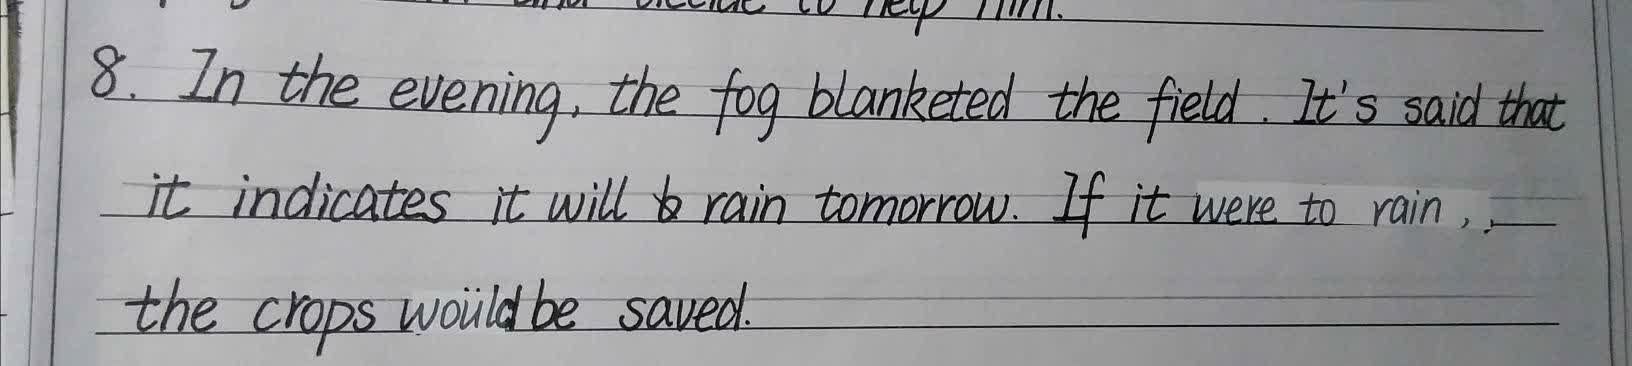 and decide to help him.
8. In the evening, the fog blanketed the field. It's said that
it indicates it will rain tomorrow. If it were to rain,
the crops would be saved.